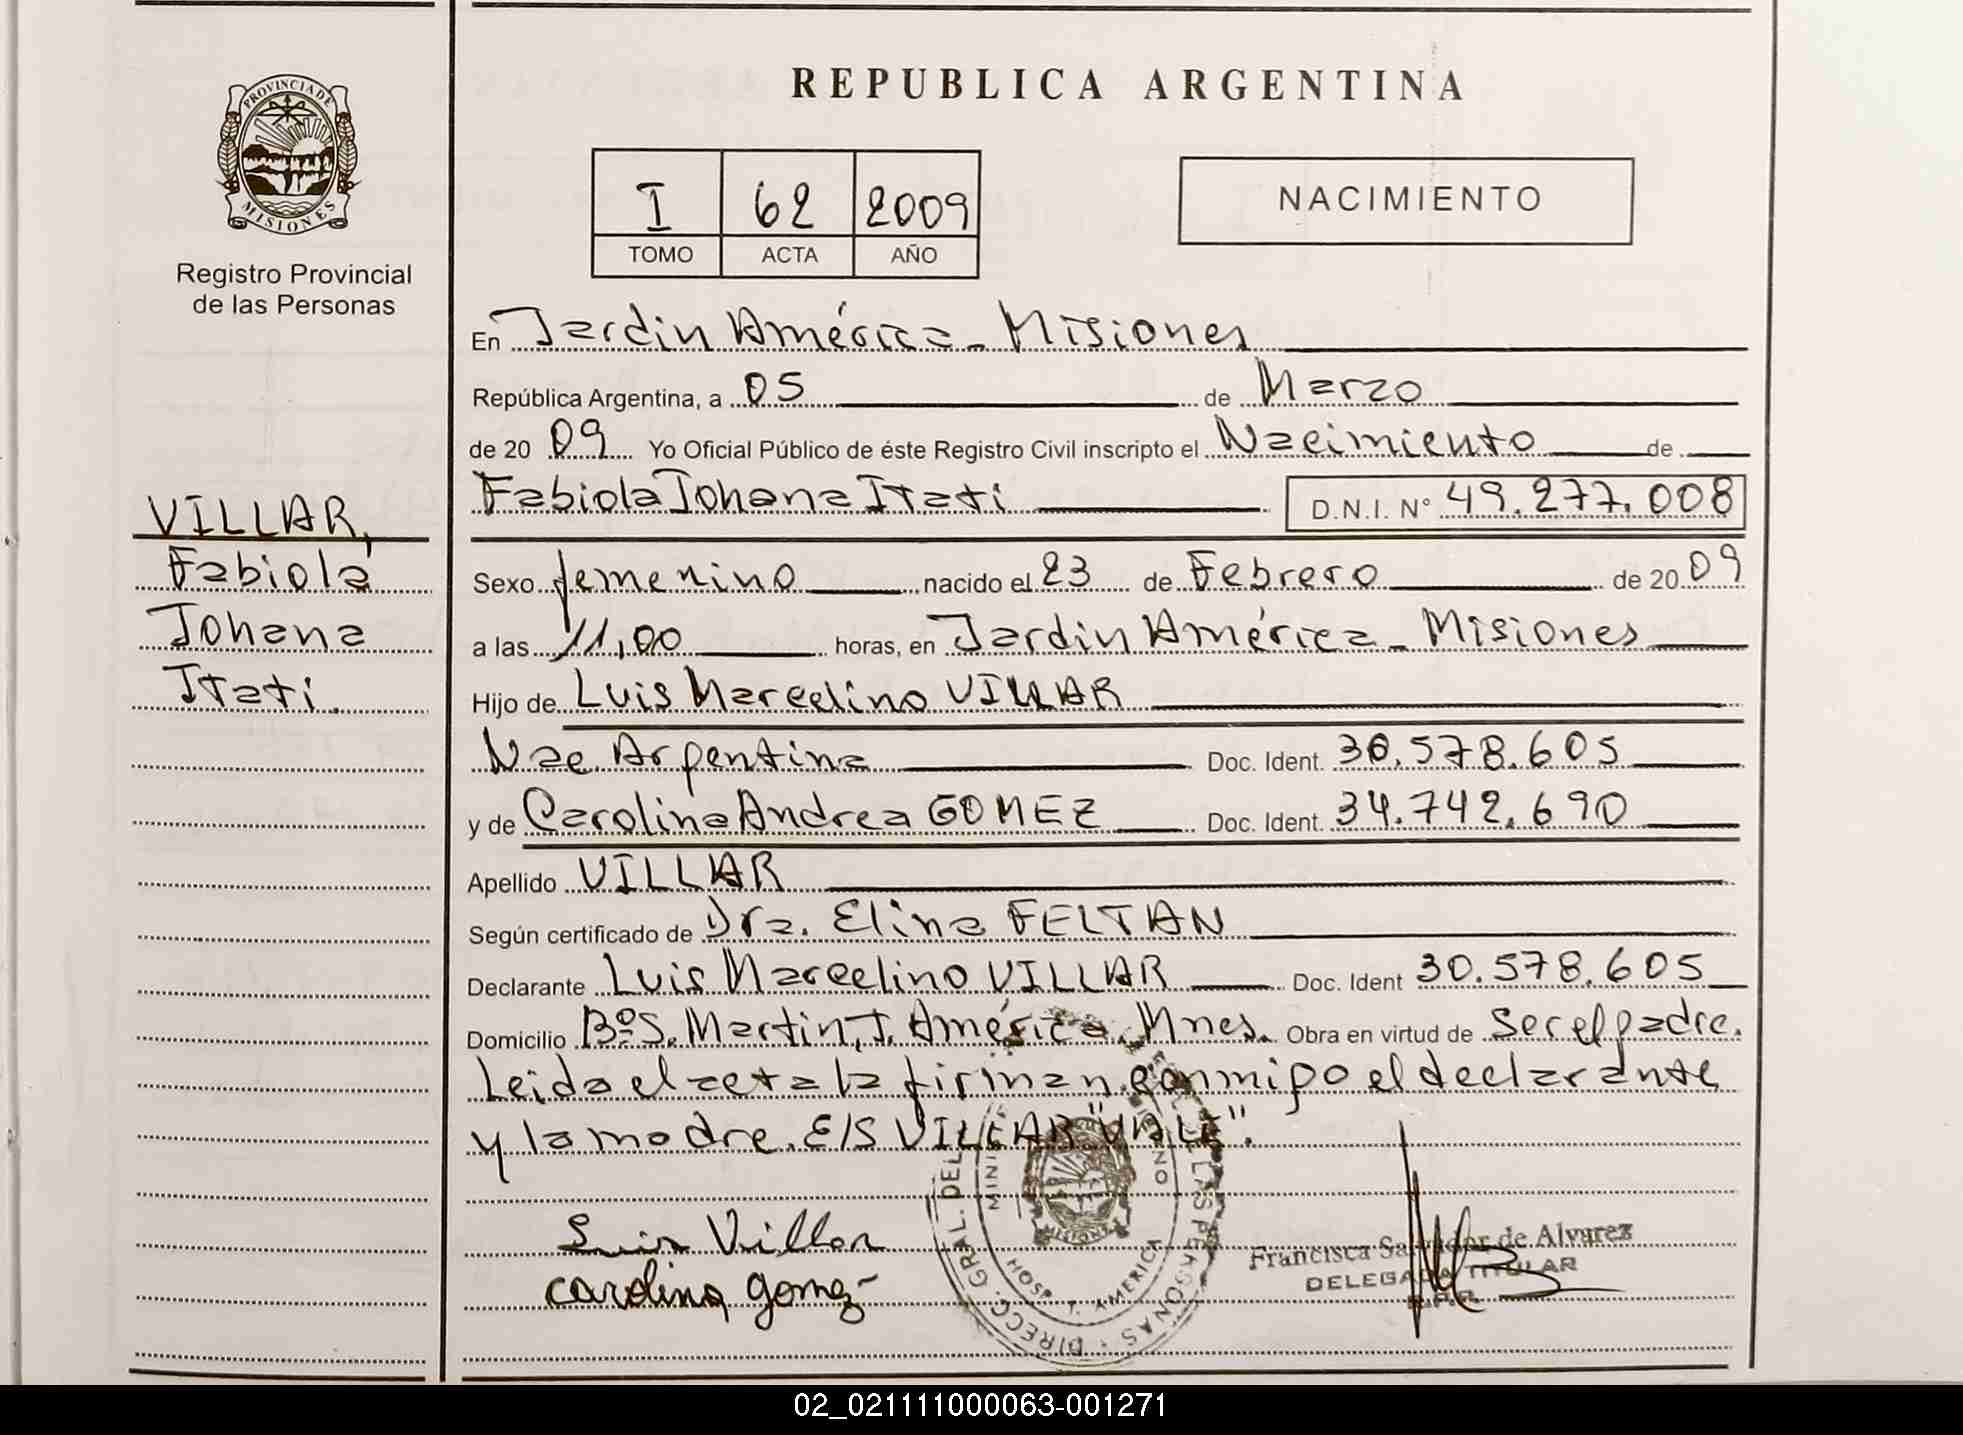 PROVINCIA DE
MISIONES
Registro Provincial
de las Personas
VILLAR,
Fabiola
Johana
Itati.
REPUBLICA ARGENTINA
I 62 2009
TOMO ACTA AÑO
NACIMIENTO
En Jardin América - Misiones
República Argentina, a 05 de Marzo
de 20 09 Yo Oficial Público de éste Registro Civil inscripto el Nacimiento de
Fabiola Johana Itati D.N.I. N° 49.277.008
Sexo femenino nacido el 23 de Febrero de 20 09
a las 11,00 horas, en Jardin América - Misiones
Hijo de Luis Marcelino VILLAR
Nac. Argentina Doc. Ident. 30.578.605
y de Carolina Andrea GOMEZ Doc. Ident. 34.742.690
Apellido VILLAR
Según certificado de Dra. Elina FELTAN
Declarante Luis Marcelino VILLAR Doc. Ident 30.578.605
Domicilio Bº S. Martin, J. América, Mnes. Obra en virtud de ser el padre.
Leida el acta la firman conmigo el declarante
y la madre. E/S VILLAR "VALE".
Luis Villar
Carolina gomez
DIRECC. GRAL. DEL LAS PERSONAS
HOSP J. AMERICA
MISIONES
Francisca Salvador de Alvarez
DELEGADA TITULAR
R.P.P.
02_021111000063-001271